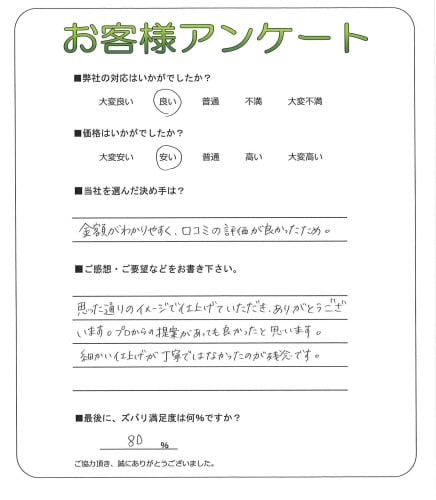 お客様アンケート
■弊社の対応はいかがでしたか？
大変良い 良い 普通 不満 大変不満
■価格はいかがでしたか？
大変安い 安い 普通 高い 大変高い
■当社を選んだ決め手は？
金額がわかりやすく、口コミの評価が良かったため。
■ご感想・ご要望などをお書き下さい。
思った通りのイメージで仕上げていただき、ありがとうござ
います。プロからの提案があっても良かったと思います。
細かい仕上げが丁寧ではなかったのが残念です。
■最後に、ズバリ満足度は何％ですか？
80 %
ご協力頂き、誠にありがとうございました。